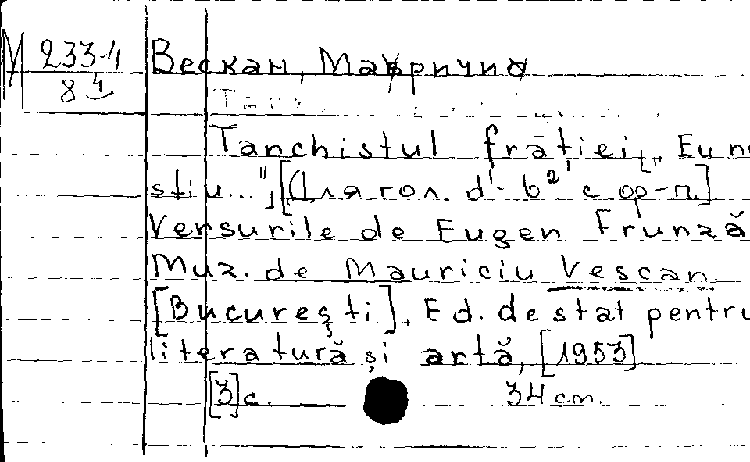 М 233-4 Вескан, Мавричио
84
Tanchistul frăţiei, [„Eu nu
ştiu..."], [Для гол. d¹-b² с ф-п.]
Versurile de Eugen Frunză
Muz. de Mauriciu Vescan
[Bucureşti], Ed. de stat pentru
literatură şi artă, [1953]
[3]с. 34 cm.